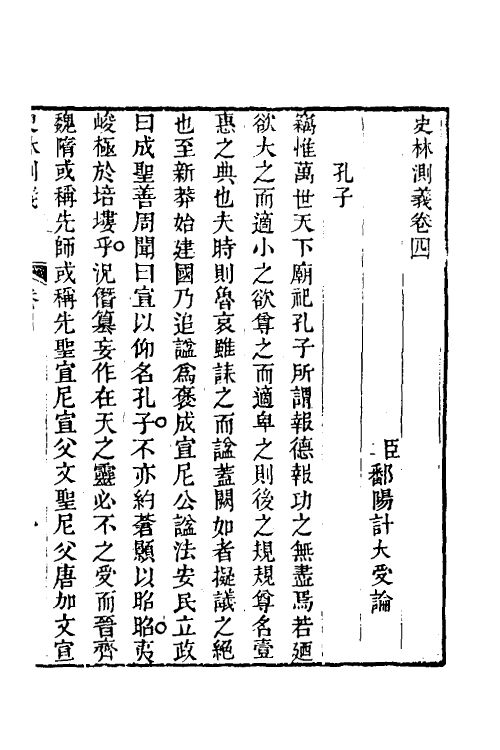 史林測義卷四
臣鄱陽計大受論
孔子
竊惟萬世天下廟祀孔子所謂報德報功之無盡焉若廼
欲大之而適小之欲尊之而適卑之則後之規規尊名壹
惠之典也夫時則魯哀雖誄之而諡蓋闕如者擬議之絕
也至新莽始建國乃追諡為褒成宣尼公諡法安民立政
曰成聖善周聞曰宣以仰名孔子不亦約蒼顥以昭昭夷
峻極於培塿乎況僭篡妄作在天之靈必不之受而晉齊
魏隋或稱先師或稱先聖宣尼宣父文聖尼父唐加文宣
史林測義